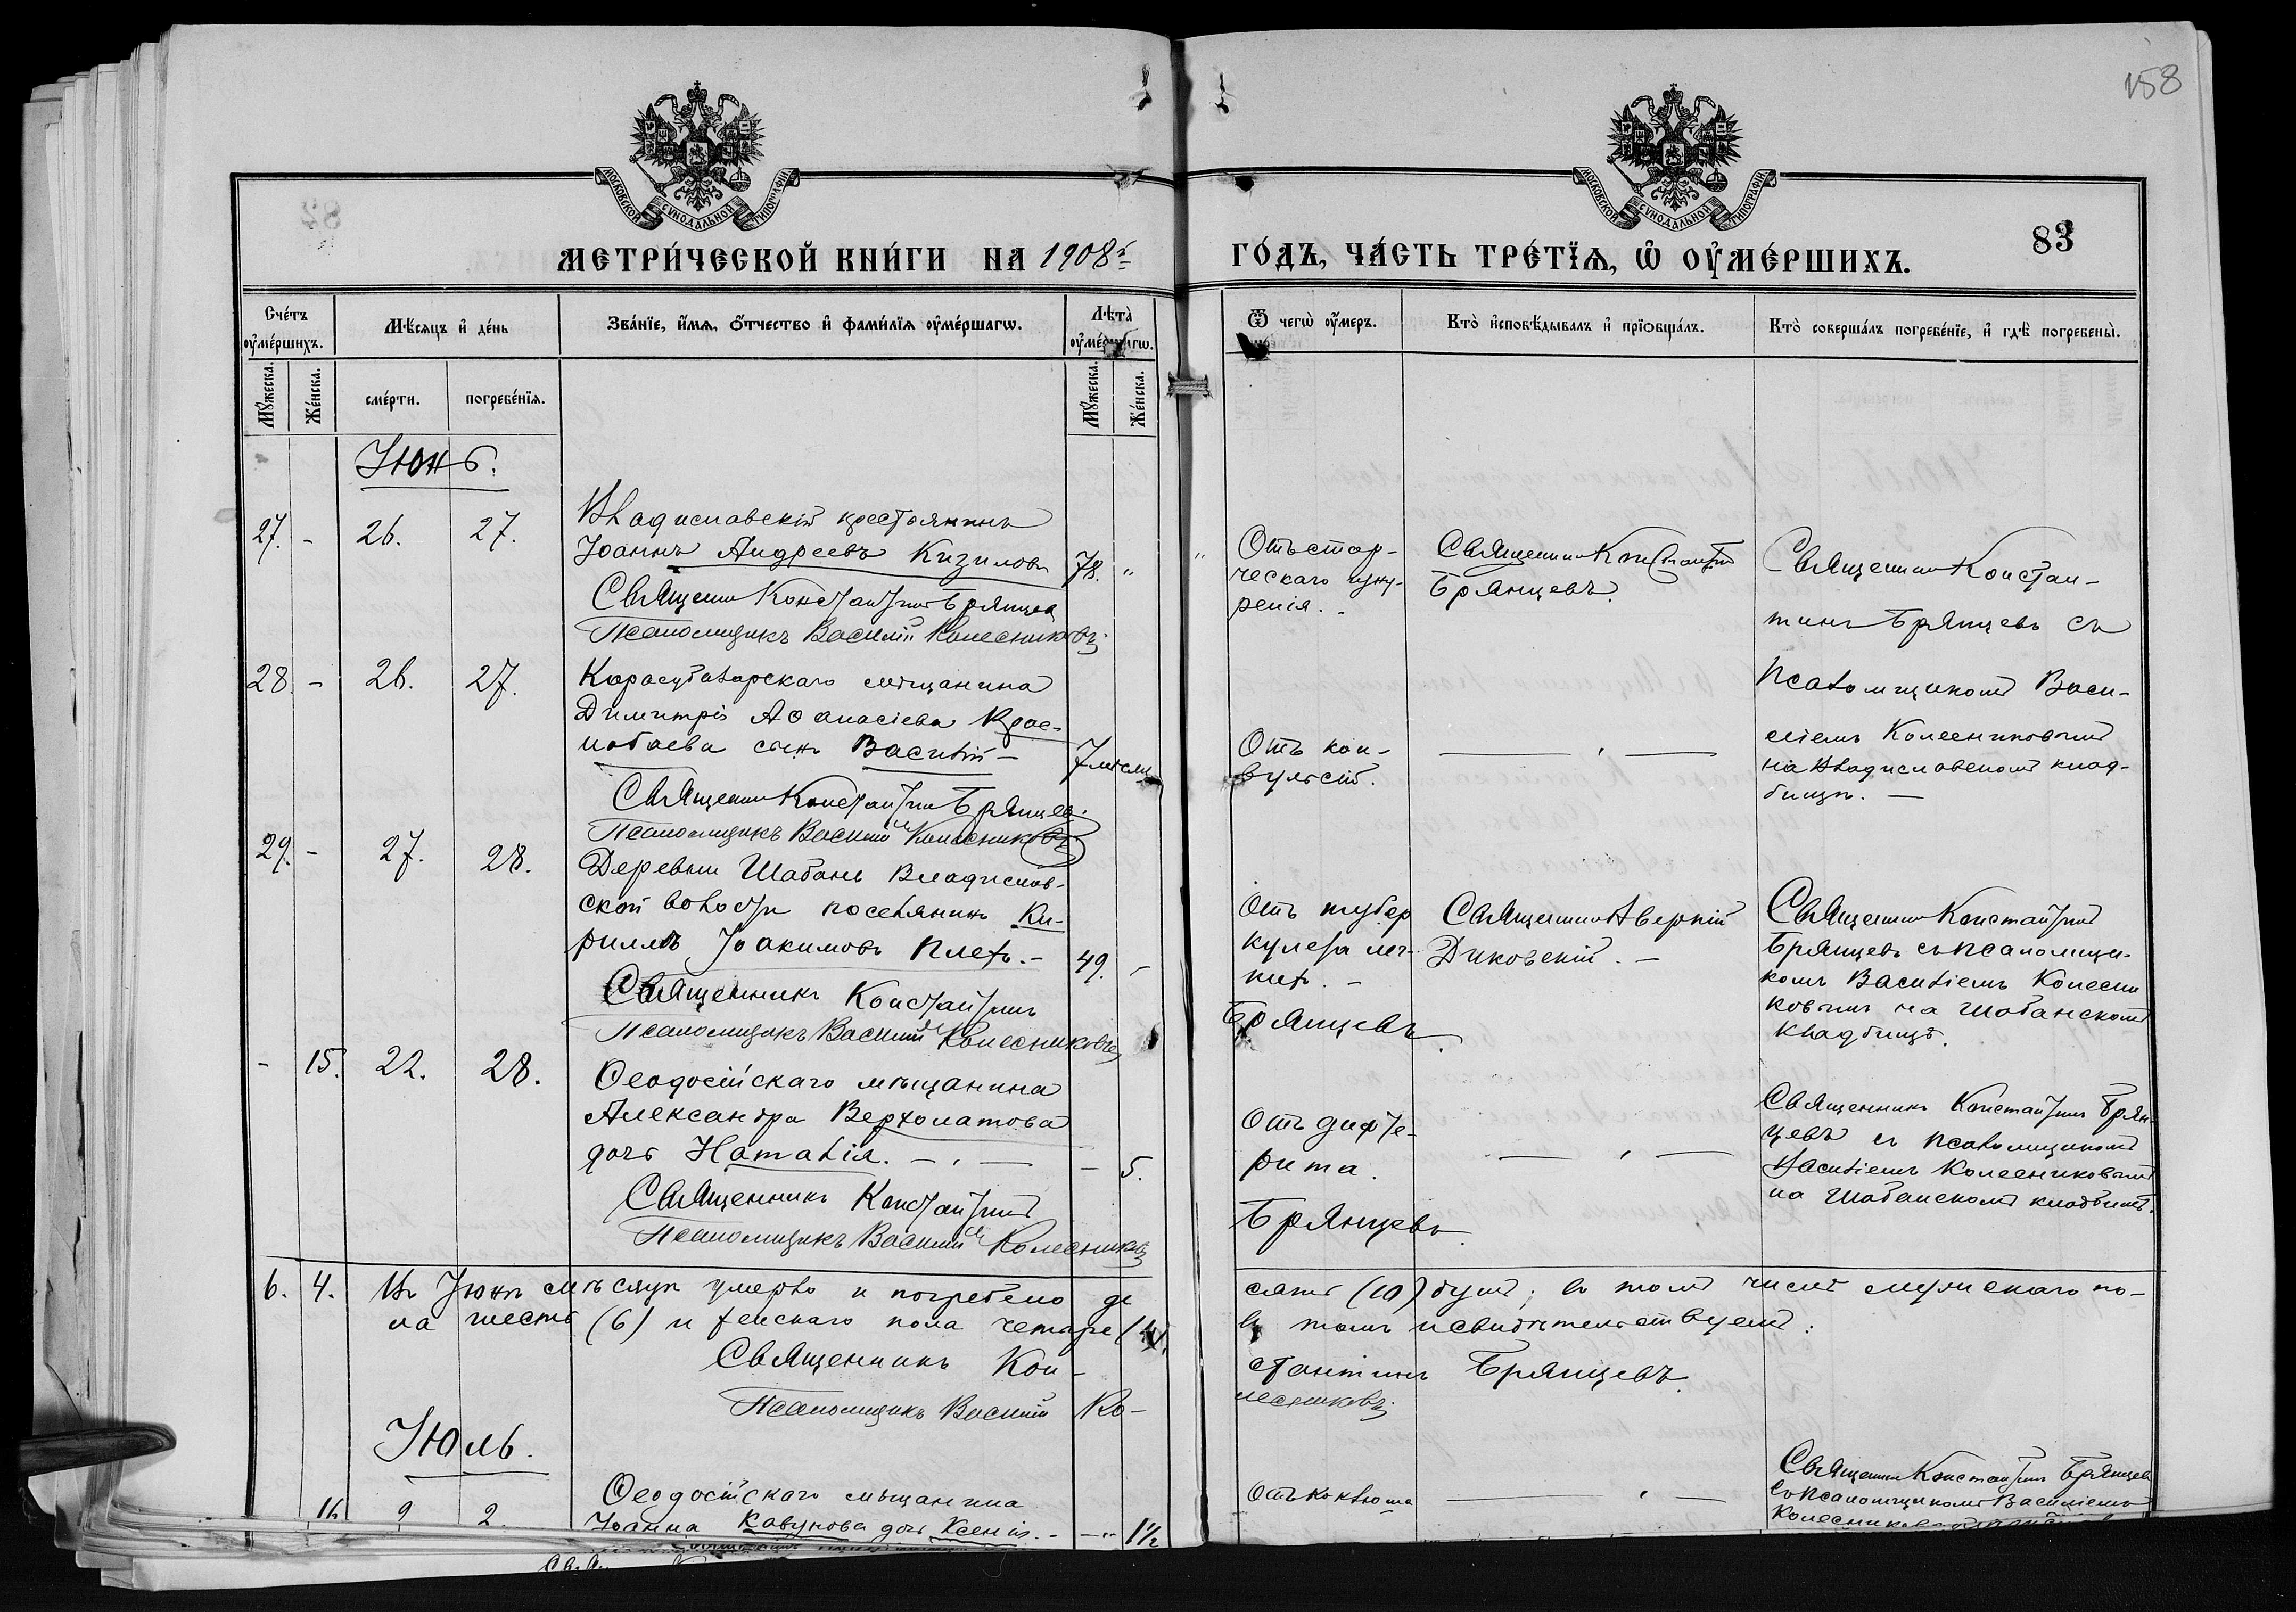 158
83
МОСКОВСКОЙ СѴНОДАЛЬНОЙ ТИПОГРАФІИ
МОСКОВСКОЙ СѴНОДАЛЬНОЙ ТИПОГРАФІИ
МЕТРИ́ЧЕСКОЙ КНИ́ГИ НА 1908й
ГО́ДЪ, ЧА́СТЬ ТРЕ́ТІѦ, Ѡ ОУ҆МЕ́РШИХЪ.
Сче́тъ оу҆ме́ршихъ.
Мѣ́сяцъ и҆ де́нь
Зва́нїе, и҆́мѧ, ѻ҆́тчество и҆ фами́лїѧ оу҆ме́ршагѡ.
Лѣта̀ оу҆ме́ршагѡ.
Ѿ чегѡ̀ оу҆́меръ.
Кто̀ и҆сповѣ́дывалъ и҆ прїѡбща́лъ.
Кто̀ соверша́лъ погребе́нїе, и҆ гдѣ̀ погребены̀.
Мꙋ́жеска.
Же́нска.
сме́рти.
погребе́нїѧ.
Мꙋ́жеска.
Же́нска.
Іюнь.
27. - 26. 27.
Владиславскій крестьянинъ
Іоаннъ Андреевъ Кизиловъ 78. "
Священникъ Константинъ Брянцевъ
Псаломщикъ Василій Колесниковъ
Отъ стар-
ческаго изну-
ренія. -
Священникъ Константинъ
Брянцевъ.
Священникъ Констан-
тинъ Брянцевъ съ
псаломщикомъ Васи-
ліемъ Колесниковымъ
на Владиславскомъ клад-
бищѣ. —
28. - 26. 27.
Карасубазарскаго мѣщанина
Димитрія Аѳанасіева Крас-
нобаева сынъ Василій — 7 мѣсяц
Священникъ Константинъ Брянцевъ
Псаломщикъ Василій Колесниковъ
Отъ кон-
вульсій.
— , —
29. - 27. 28.
Деревни Шабань Владислав-
ской волости поселянинъ Ки-
риллъ Іоакимовъ Плет. - 49. -
Священникъ Константинъ
Псаломщикъ Василій Колесниковъ
Отъ тубер
кулеза лег-
ких. -
Брянцевъ.
Священникъ Аверкій
Диковскій. —
Священникъ Константинъ
Брянцевъ съ псаломщи-
комъ Василіемъ Колесни
ковымъ на Шабанскомъ
кладбищѣ.
- 15. 22. 28.
Ѳеодосійскаго мѣщанина
Александра Верхолатова
дочь Наталія. — , — - 5.
Священникъ Константинъ
Псаломщикъ Василій Колесниковъ
Отъ дифте-
рита.
— , —
Брянцевъ.
Священникъ Константинъ Брян-
цевъ съ псаломщикомъ
Василіемъ Колесниковымъ
на Шабанскомъ кладбищѣ.
6. 4. Въ Іюнѣ мѣсяцѣ умерло и погребено де
сять (10) душъ; въ томъ числѣ мужскаго по-
ла шесть (6) и женскаго пола четыре (4).
въ томъ и свидѣтельствуемъ:
Священникъ Кон-
стантинъ Брянцевъ.
Псаломщикъ Василій Ко-
лесниковъ
Іюль.
16 2 2.
Ѳеодосійскаго мѣщанина
Іоанна Кавунова дочь Ксенія. - - " 1½
Отъ коклюша
— , —
Священникъ Константинъ Брянцевъ
съ псаломщикомъ Василіемъ